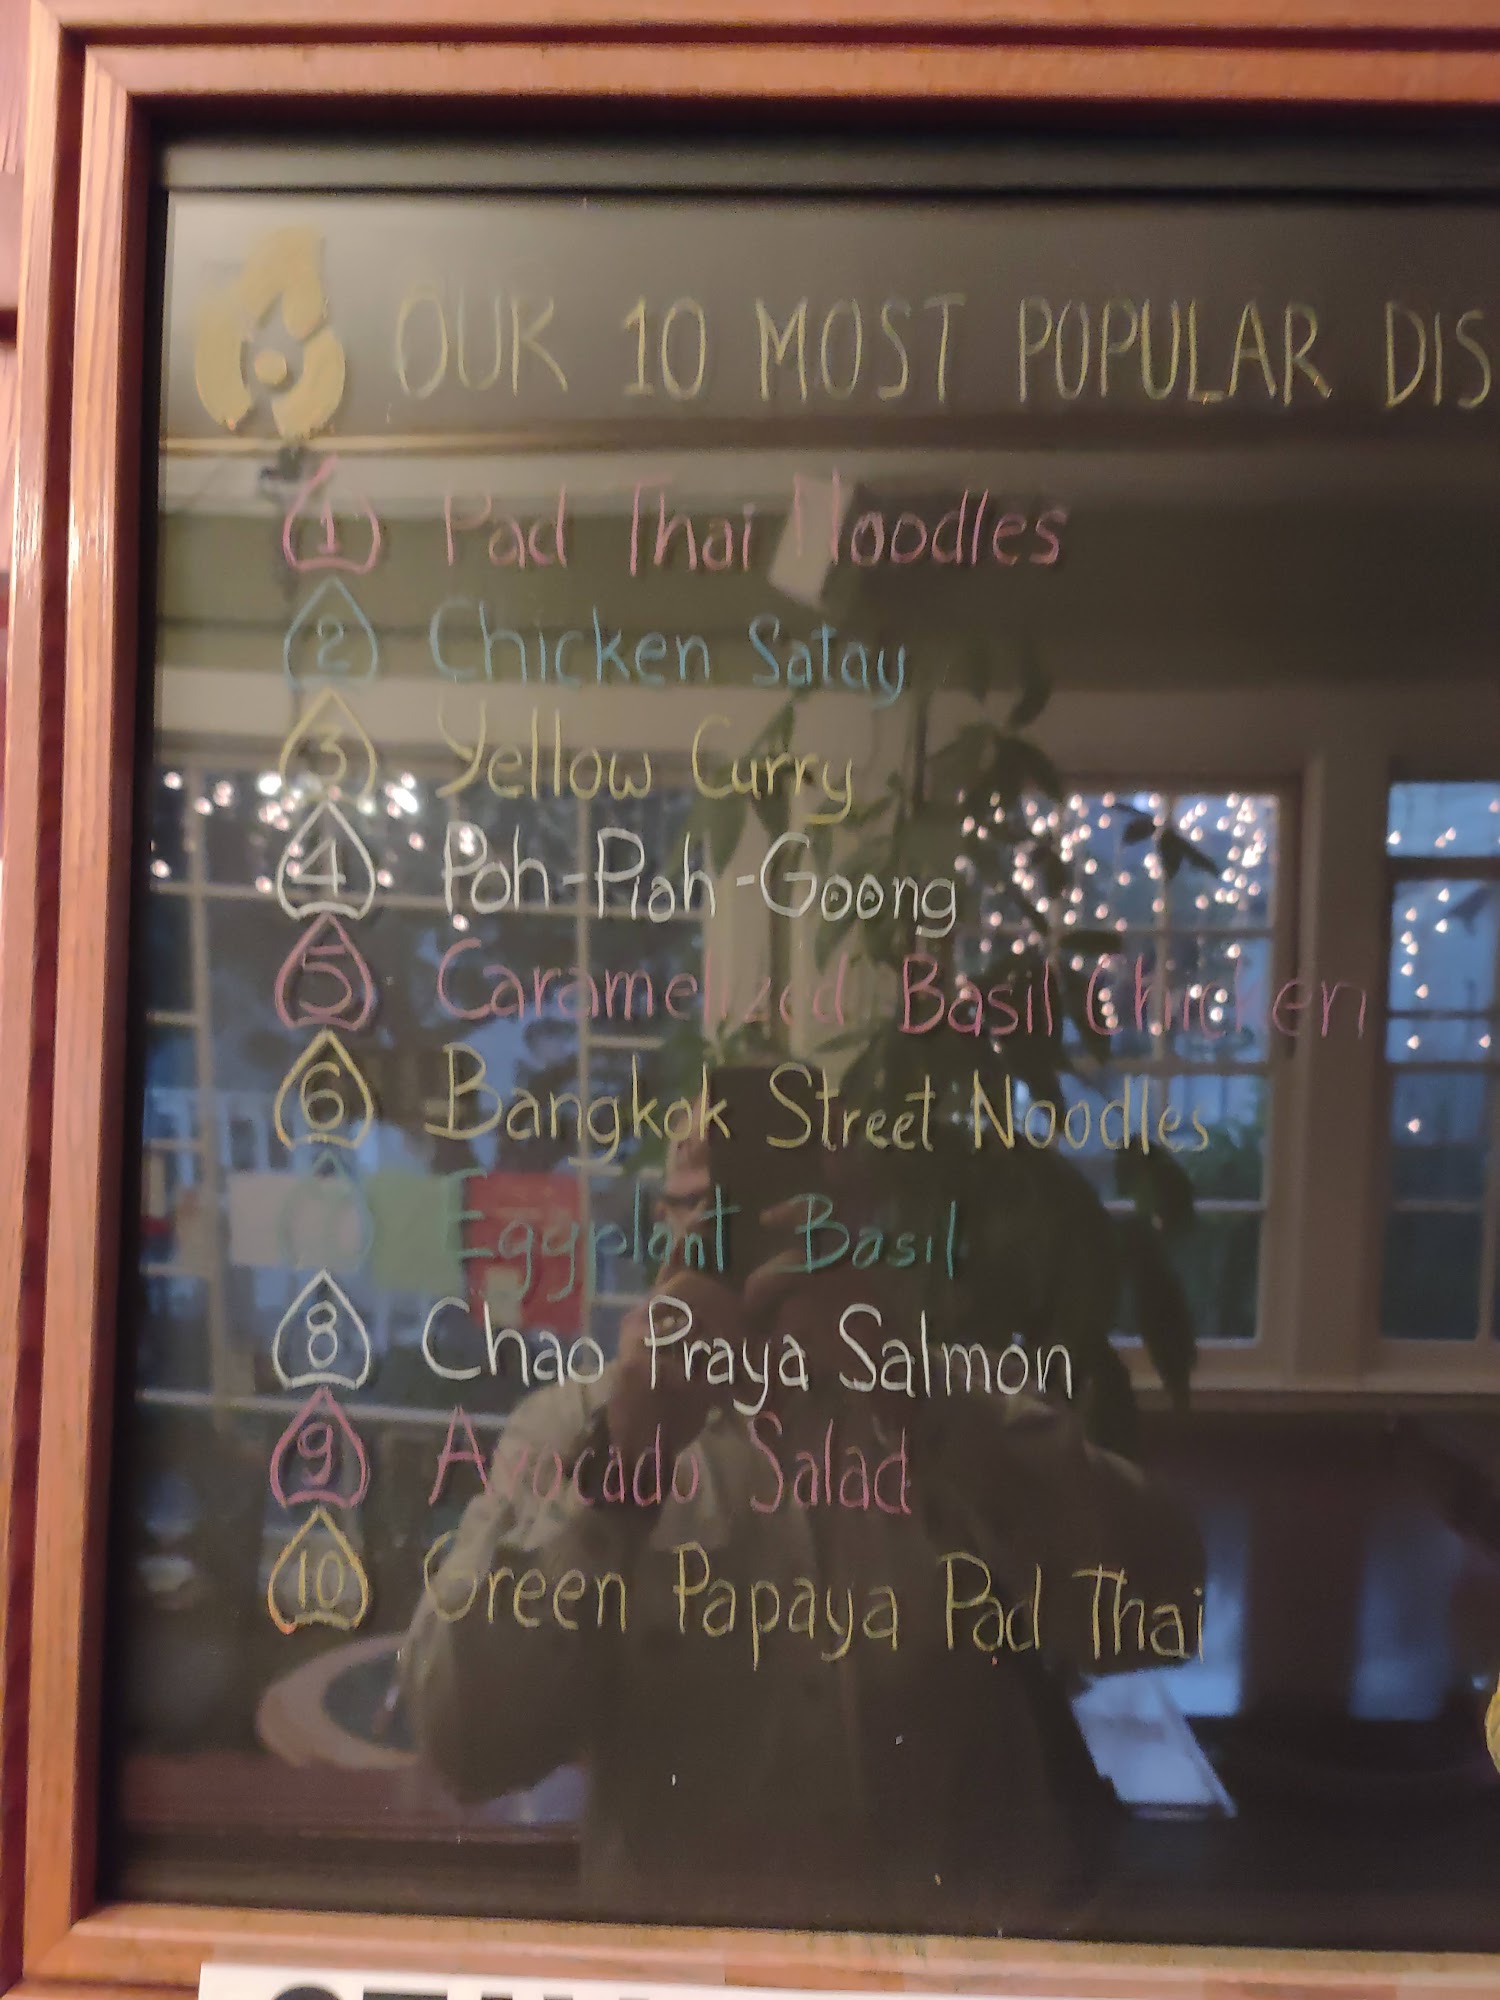 OUR 10 MOST POPULAR DIS
1 Pad Thai Noodles
2 Chicken Satay
3 Yellow Curry
4 Poh-Piah-Goong
5 Caramelized Basil Chicken
6 Bangkok Street Noodles
Eggplant Basil
8 Chao Praya Salmon
9 Avocado Salad
10 Green Papaya Pad Thai